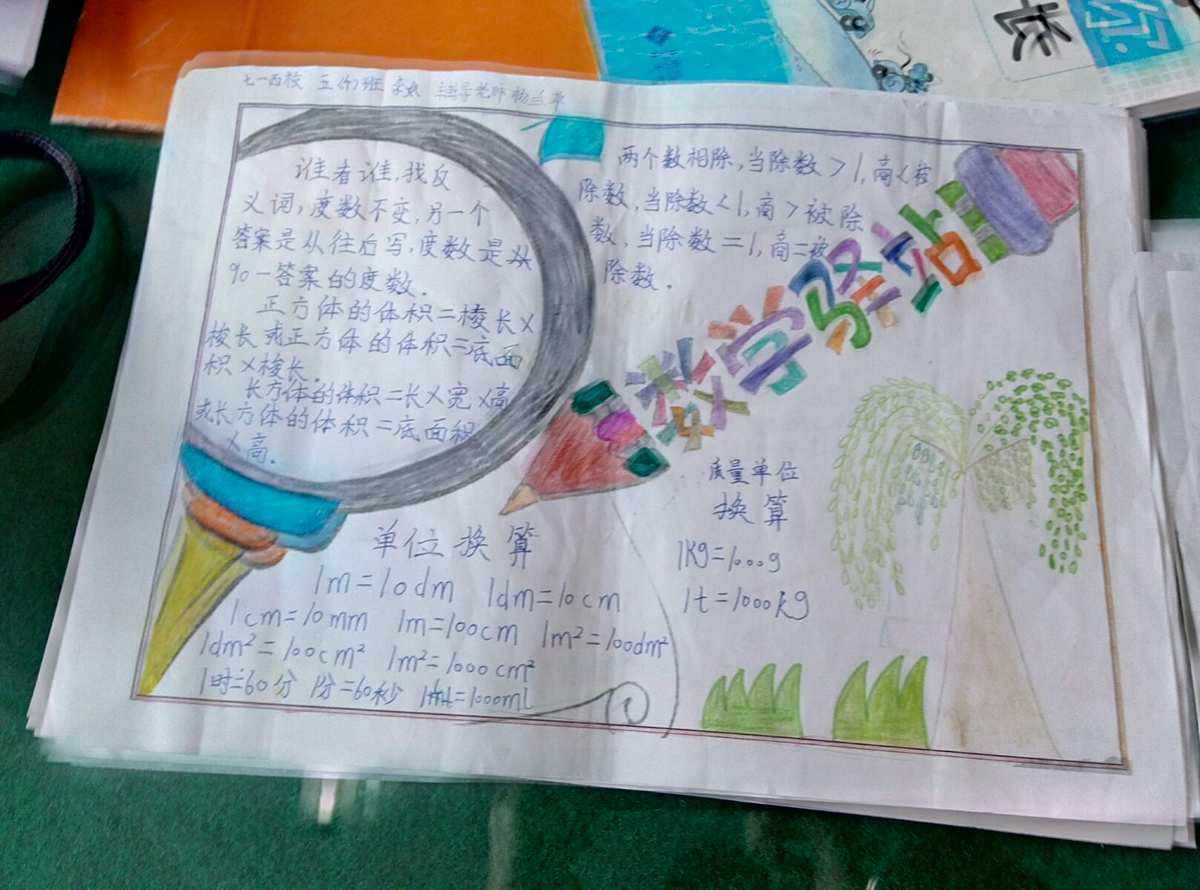 七一西校 五(4)班
长
你
谁看谁,找反
义词,度数不变,另一个
答案是从往后写,度数是从
90-答案的度数.
正方体的体积=棱长×
棱长或正方体的体积=底面
积×棱长.
长方体的体积=长×宽×高
或长方体的体积=底面积
×高.
两个数相除,当除数>1,商<被
除数,当除数<1,商>被除
数,当除数=1,商=被
除数.
数学驿站
单位换算
1m=10dm 1dm=10cm
1cm=10mm 1m=100cm 1m²=100dm²
1dm²=100cm² 1m²=1000cm²
1时=60分 1分=60秒 =1000ml
质量单位
换算
1Kg=1000g
1t=1000kg